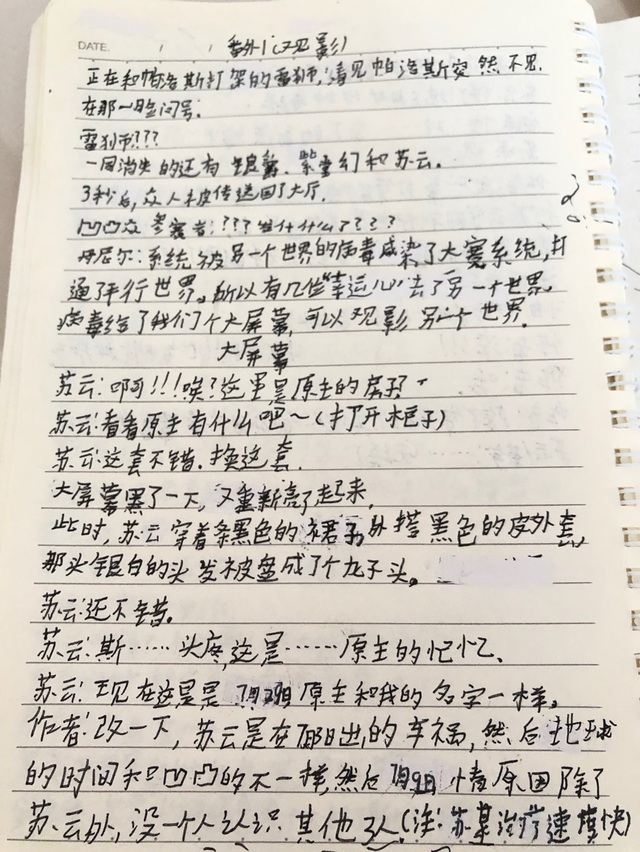 DATE. / /
番外1(观影)
正在和帕洛斯打架的雷狮,看见帕洛斯突然不见.
在那一脸问号.
雷狮???
一同消失的还有银爵、紫堂幻和苏云.
3秒后,众人被传送回了大厅.
凹凸众参赛者:???发什什么????
丹尼尔:系统被另一个世界的病毒感染了大赛系统,打
通了平行世界。所以有几位幸运儿去了另一个世界.
病毒给了我们个大屏幕,可以观影另一个世界.
大屏幕
苏云:啊!!!唉?这里是原主的房子
苏云:看看原主有什么吧~(打开柜子)
苏云:这套不错.换这套.
大屏幕黑了一下,又重新亮了起来.
此时,苏云穿着条黑色的裙子,外搭黑色的皮外套,
那头银白的头发被盘成了个丸子头。
苏云:还不错。
苏云:斯……头疼,这是……原主的记忆.
苏云:现在这是是 原主和我的名字一样。
作者:改一下,苏云是在 出的车祸,然后地球
的时间和凹凸的不一样,然后 情原因除了
苏云外,没一个人认识其他3人(注:苏某治疗速度快)